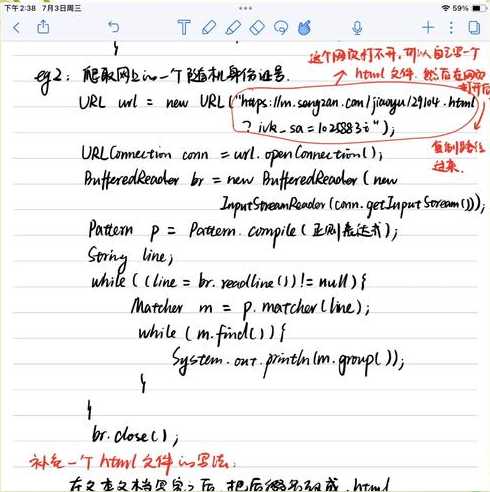 下午2:38 7月3日周三
59%
}
这个网页打不开,可以自己写一个
html 文件. 然后在网页
打开后
复制路径
过来.
eg2: 爬取网上的一个随机身份证号.
URL url = new URL("https://m.sengzan.com/jiaoyu/29104.html
? ivk_sa=1025883i");
URLConnection conn = url.openConnection();
BufferedReader br = new BufferedReader (new
InputStreamReader (conn.getInputStream()));
Pattern p = Pattern.compile (正则表达式);
String line;
while ((line = br.readline()) != null){
Matcher m = p.matcher(line);
while (m.find()){
System.out.println(m.group());
}
}
br.close();
补充一个 html 文件的写法:
在文本文档里写之后, 把后缀名改成 .html